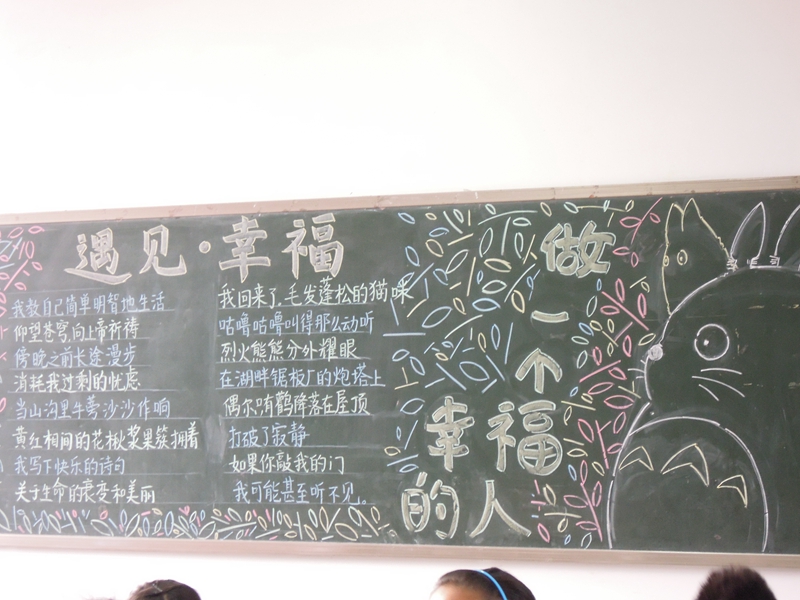 遇见·幸福
我教自己简单明智地生活
仰望苍穹,向上帝祈祷
傍晚之前长途漫步
消耗我过剩的忧虑
当山沟里牛蒡沙沙作响
黄红相间的花楸浆果簇拥着
我写下快乐的诗句
关于生命的衰变和美丽
我回来了.毛发蓬松的猫咪
咕噜咕噜叫得那么动听
烈火熊熊分外耀眼
在湖畔锯板厂的炮塔上
偶尔有鹤降落在屋顶
打破了寂静
如果你敲我的门
我可能甚至听不见。
做
一
个
幸福
的人